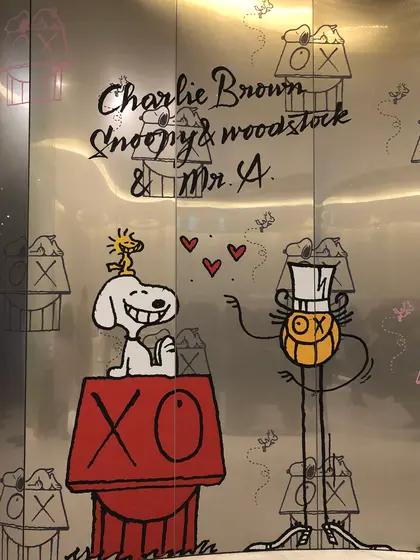 Charlie Brown
Snoopy & woodstock
& Mr. A.
XO
OX